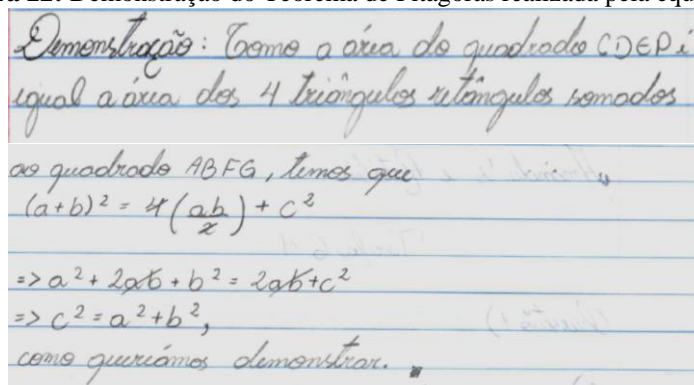 ra 22: Demonstração do Teorema de Pitágoras realizada pela equ
Demonstração: Como a área do quadrado CDEP é
igual a área dos 4 triângulos retângulos somados
ao quadrado ABFG, temos que
(a+b)² = 4(ab/2) + c²
=> a² + 2ab + b² = 2ab + c²
=> c² = a² + b²,
como queríamos demonstrar.